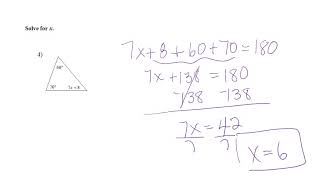 Solve for x.
4)
60°
70°
7x + 8
7x+8+60+70 = 180
7x + 138 = 180
-138 -138
7x = 42
7 7
x = 6